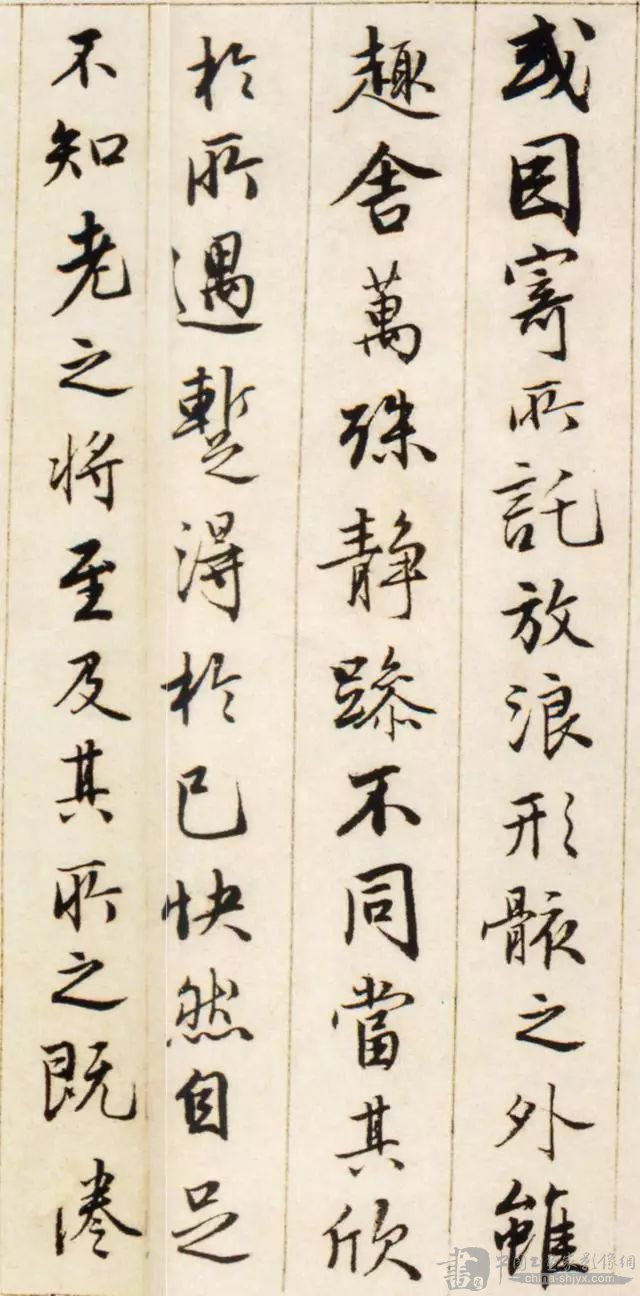 或因寄所託放浪形骸之外雖
趣舍萬殊靜躁不同當其欣
於所遇蹔得於己快然自足
不知老之將至及其所之既惓
中国工艺家影像網
china-shjyx.com